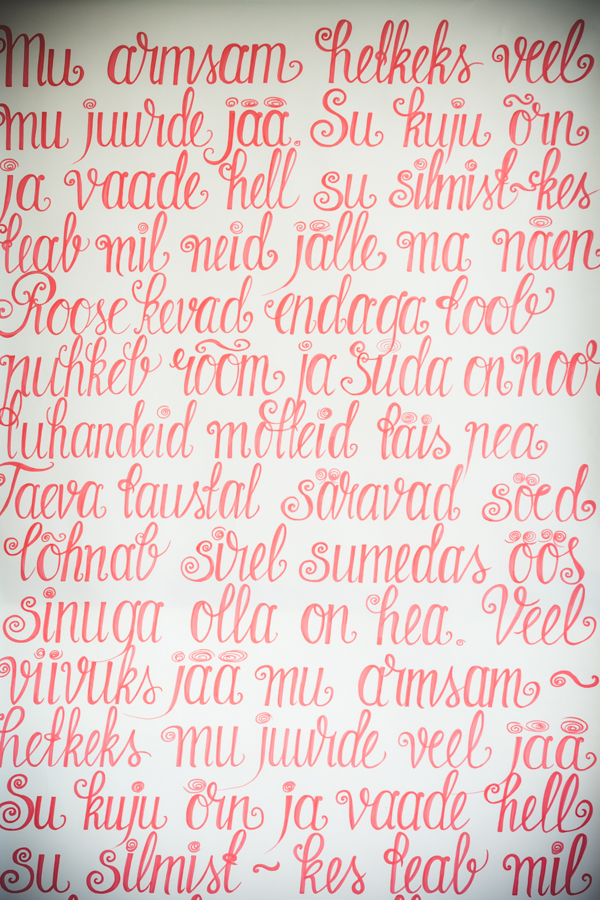 Mu armsam hetkeks veel
mu juurde jää. Su kuju õrn
ja vaade hell su silmist~kes
teab mil neid jälle ma näen
Roose kevad endaga toob
puhkeb rõõm ja süda on noor
tuhandeid mõtteid täis pea
Taeva taustal säravad söed
lõhnab sirel sumedas öös
sinuga olla on hea. Veel
viivuks jää mu armsam ~
hetkeks mu juurde veel jää
Su kuju õrn ja vaade hell
su silmist ~ kes teab mil